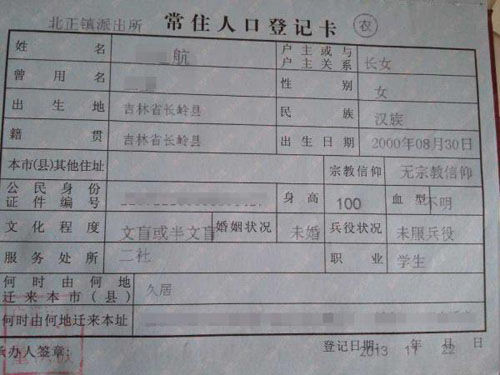 北正镇派出所 常住人口登记卡 农
姓名 航 户主或与户主关系 长女
曾用名 性别 女
出生地 吉林省长岭县 民族 汉族
籍贯 吉林省长岭县 出生日期 2000年08月30日
本市(县)其他住址 宗教信仰 无宗教信仰
公民身份证件编号 身高 100 血型 不明
文化程度 文盲或半文盲 婚姻状况 未婚 兵役状况 未服兵役
服务处所 二社 职业 学生
何时由何地迁来本市(县) 久居
何时由何地迁来本址
承办人签章: 登记日期: 2013年11月22日